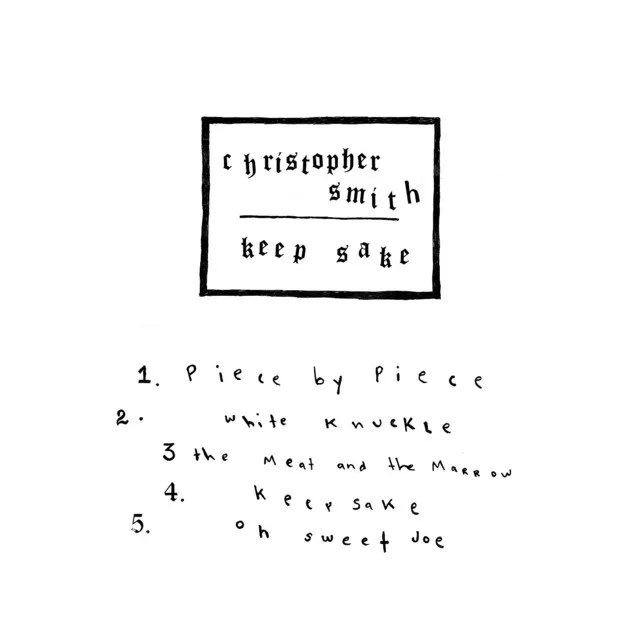 christopher
smith
keep sake
1. Piece by Piece
2. white knuckle
3 the Meat and the Marrow
4. keep sake
5. oh sweet Joe